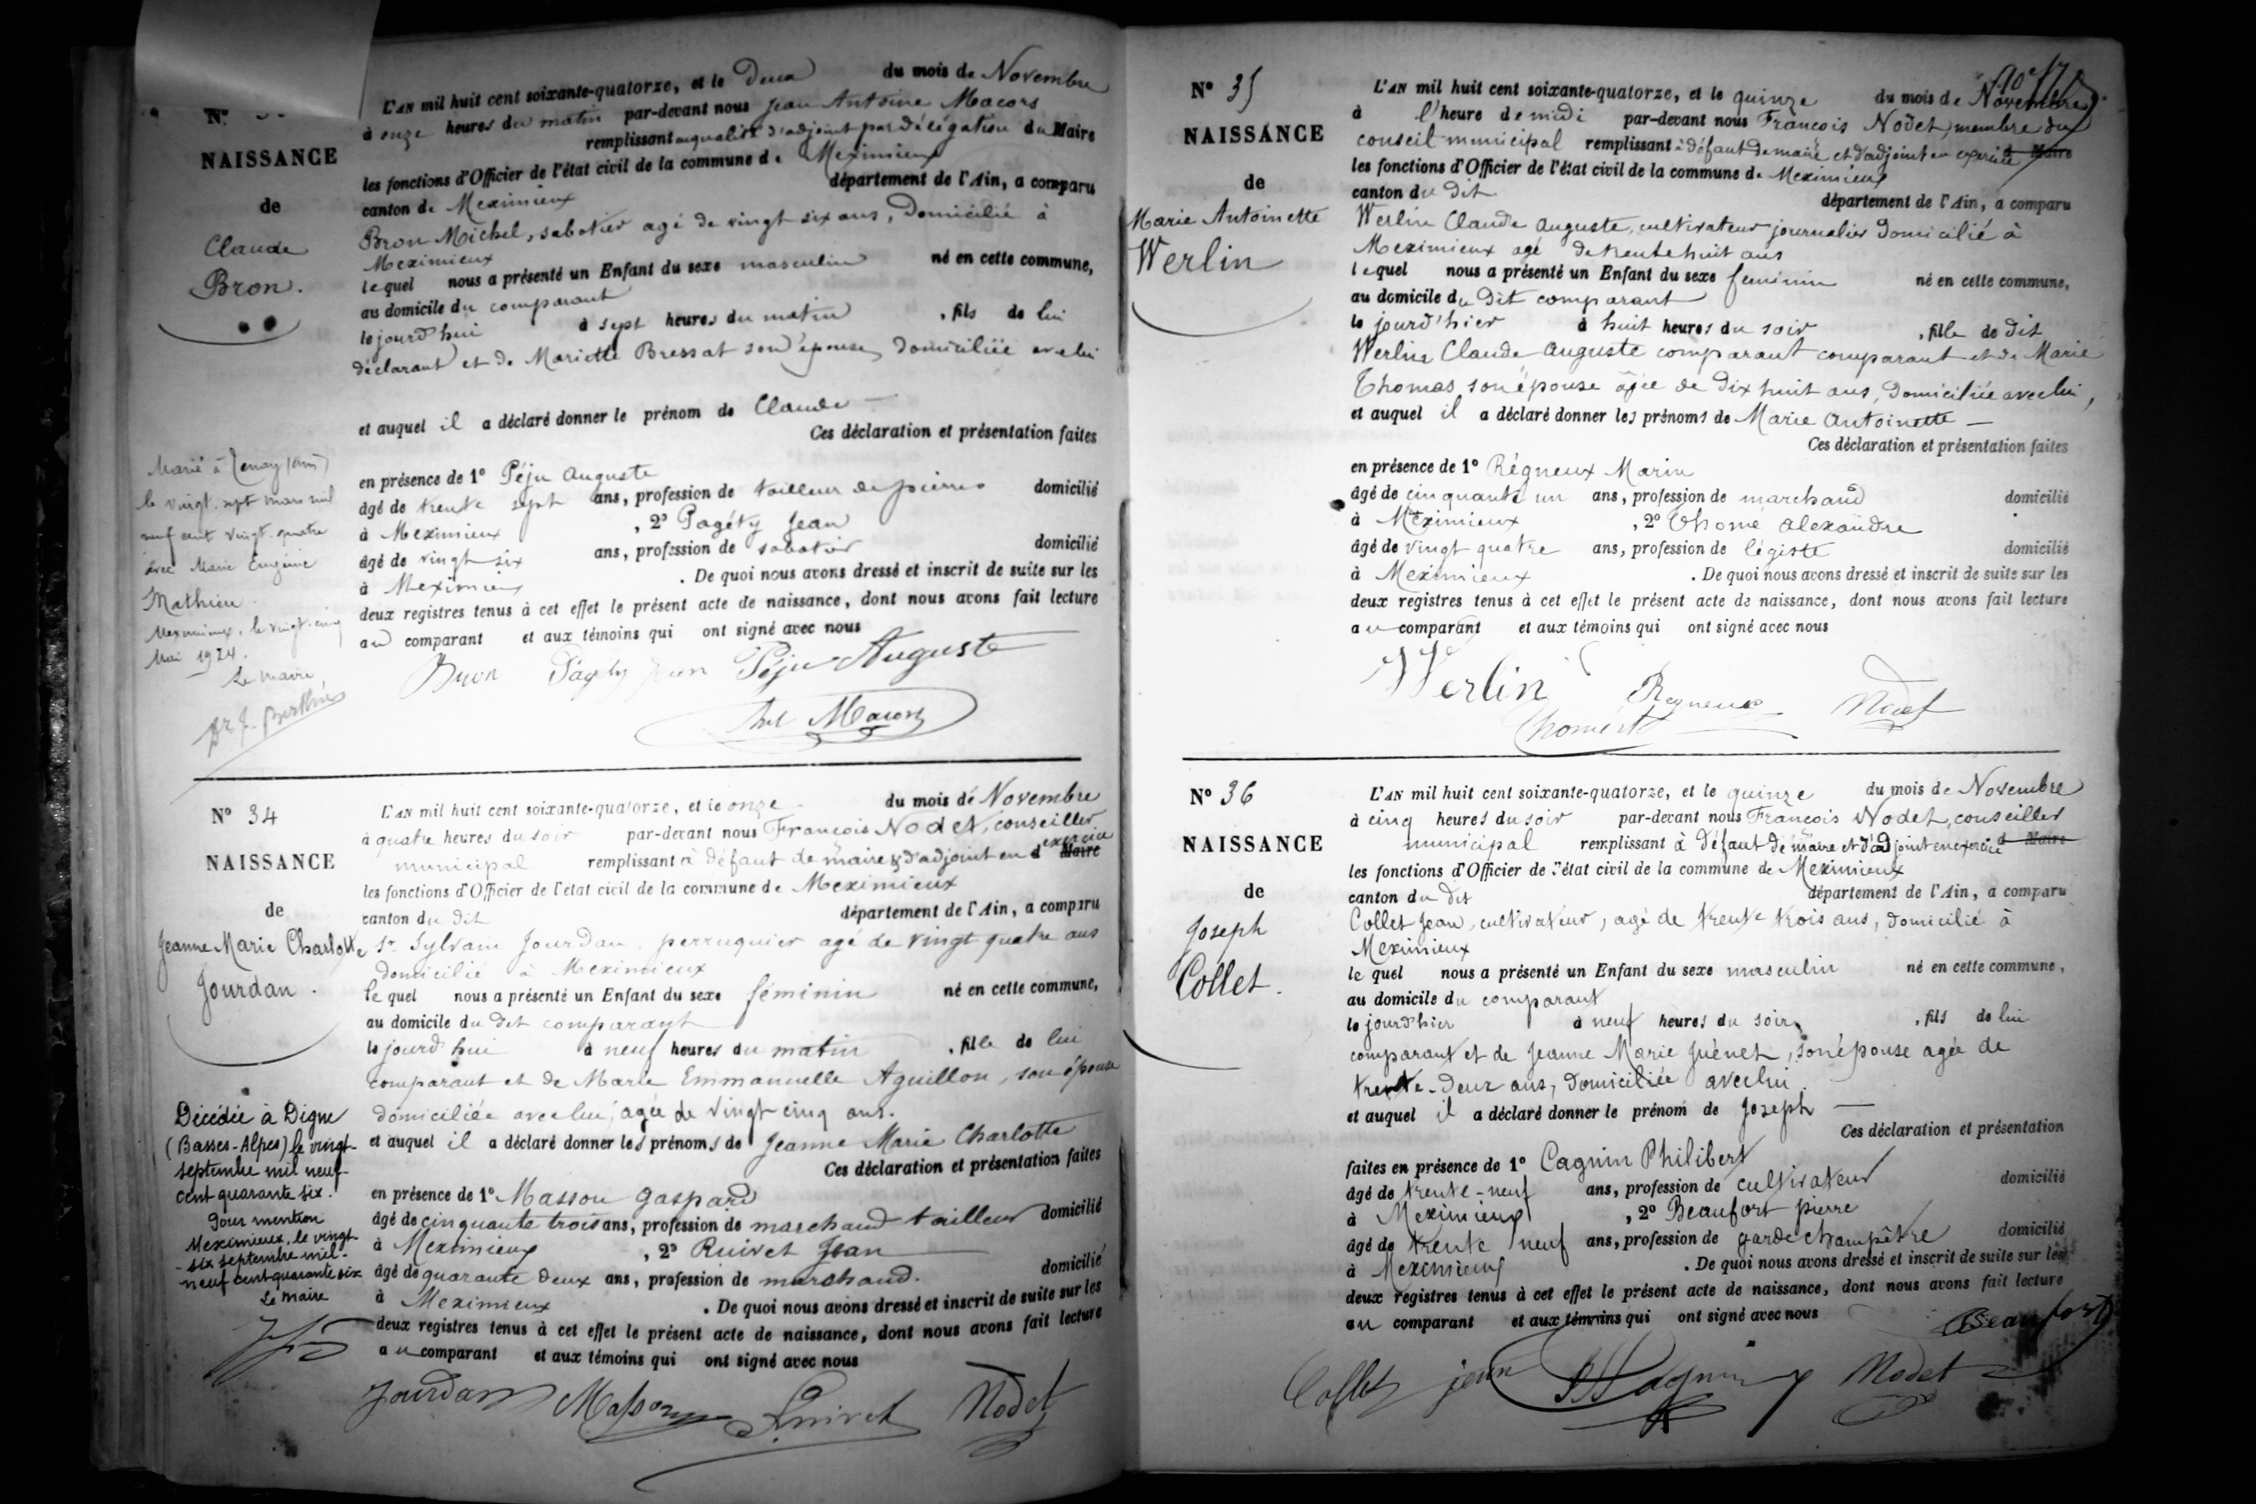 N°
NAISSANCE
de
Claude
Bron.
L'AN mil huit cent soixante-quatorze, et le Deux du mois de Novembre
à onze heures du matin par-devant nous Jean Antoine Macors
remplissant en qualité d'adjoint par délégation du Maire
les fonctions d'Officier de l'état civil de la commune de Meximieux
canton de Meximieux département de l'Ain, a comparu
Bron Michel, sabotier agé de vingt six ans, Domicilié à
Meximieux
lequel nous a présenté un Enfant du sexe masculin né en cette commune,
au domicile du comparant
le jourd'hui à sept heures du matin, fils de lui
déclarant et de Mariette Bressat son épouse, domiciliée avec lui
et auquel il a déclaré donner le prénom de Claude —
Ces déclaration et présentation faites
en présence de 1° Péju Auguste
âgé de trente sept ans, profession de tailleur de pierres domicilié
à Meximieux, 2° Pagéty Jean
âgé de vingt six ans, profession de sabotier domicilié
à Meximieux. De quoi nous avons dressé et inscrit de suite sur les
deux registres tenus à cet effet le présent acte de naissance, dont nous avons fait lecture
au comparant et aux témoins qui ont signé avec nous
Bron Pagéty Jean Péju Auguste
Ant Macors
Marié à Tenay (Ain)
le vingt-sept mars mil
neuf cent vingt-quatre
avec Marie Eugénie
Mathieu.
Meximieux, le vingt-cinq
Mai 1924.
Le maire,
N° 34
NAISSANCE
de
Jeanne Marie Charlotte
Jourdan.
L'AN mil huit cent soixante-quatorze, et le onze du mois de Novembre
à quatre heures du soir par-devant nous François Nodet, conseiller
municipal remplissant à défaut de maire & d'adjoint en exercice d Maire
les fonctions d'Officier de l'état civil de la commune de Meximieux
canton du dit département de l'Ain, a comparu
Sr Sylvain Jourdan, perruquier agé de vingt quatre ans
domicilié à Meximieux
le quel nous a présenté un Enfant du sexe féminin né en cette commune,
au domicile du dit comparant
le jourd'hui à neuf heures du matin, fille de lui
comparant et de Marie Emmanuelle Aguillon, son épouse
domiciliée avec lui, agée de vingt-cinq ans.
et auquel il a déclaré donner les prénoms de Jeanne Marie Charlotte
Ces déclaration et présentation faites
en présence de 1° Masson Gaspard
âgé de cinquante trois ans, profession de marchand tailleur domicilié
à Meximieux, 2° Ruivet Jean
âgé de quarante deux ans, profession de marchand. domicilié
à Meximieux. De quoi nous avons dressé et inscrit de suite sur les
deux registres tenus à cet effet le présent acte de naissance, dont nous avons fait lecture
au comparant et aux témoins qui ont signé avec nous
Jourdan Masson Ruivet Nodet
Décédée à Digne
(Basses-Alpes) le vingt
septembre mil neuf
cent quarante six.
Pour mention
Meximieux, le vingt
-six septembre mil-
neuf cent quarante six
Le Maire
N° 35
NAISSANCE
de
Marie Antoinette
Werlin
L'AN mil huit cent soixante-quatorze, et le quinze du mois de Novembre
à l'heure de midi par-devant nous François Nodet, membre du
conseil municipal remplissant à défaut de maire et d'adjoint en exercice d Maire
les fonctions d'Officier de l'état civil de la commune de Meximieux
canton du dit département de l'Ain, a comparu
Werlin Claude Auguste, cultivateur journalier domicilié à
Meximieux agé de trente huit ans
lequel nous a présenté un Enfant du sexe feminin né en cette commune,
au domicile du dit comparant
le jourd'hier à huit heures du soir, fille de dit
Werlin Claude Auguste comparant comparant et de Marie
Thomas son épouse âgée de dix huit ans, domiciliée avec lui,
et auquel il a déclaré donner les prénoms de Marie Antoinette —
Ces déclaration et présentation faites
en présence de 1° Régneux Marin
âgé de cinquante un ans, profession de marchand domicilié
à Meximieux, 2° Thomé Alexandre
âgé de vingt quatre ans, profession de légiste domicilié
à Meximieux. De quoi nous avons dressé et inscrit de suite sur les
deux registres tenus à cet effet le présent acte de naissance, dont nous avons fait lecture
au comparant et aux témoins qui ont signé avec nous
Werlin Regneux Nodet
N° 36
NAISSANCE
de
Joseph
Collet.
L'AN mil huit cent soixante-quatorze, et le quinze du mois de Novembre
à cinq heures du soir par-devant nous François Nodet, conseiller
municipal remplissant à défaut de maire et d'adjoint en exercice d Maire
les fonctions d'Officier de l'état civil de la commune de Meximieux
canton du dit département de l'Ain, a comparu
Collet Jean, cultivateur, agé de trente trois ans, domicilié à
Meximieux
le quel nous a présenté un Enfant du sexe masculin né en cette commune,
au domicile du comparant
le jourd'hier à neuf heures du soir, fils de lui
comparant et de Jeanne Marie Juénet, son épouse agée de
trente-deux ans, domiciliée avec lui
et auquel il a déclaré donner le prénom de Joseph —
Ces déclaration et présentation
faites en présence de 1° Cagnin Philibert
âgé de trente-neuf ans, profession de cultivateur domicilié
à Meximieux, 2° Beaufort pierre
âgé de trente neuf ans, profession de garde champêtre domicilié
à Meximieux. De quoi nous avons dressé et inscrit de suite sur les
deux registres tenus à cet effet le présent acte de naissance, dont nous avons fait lecture
au comparant et aux témoins qui ont signé avec nous
Beaufort
Collet jean Cagnin Nodet